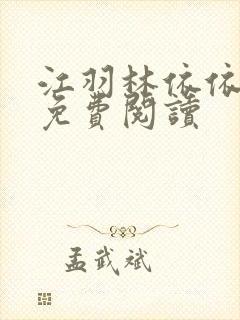 江羽林依依
免費閱讀
孟武斌